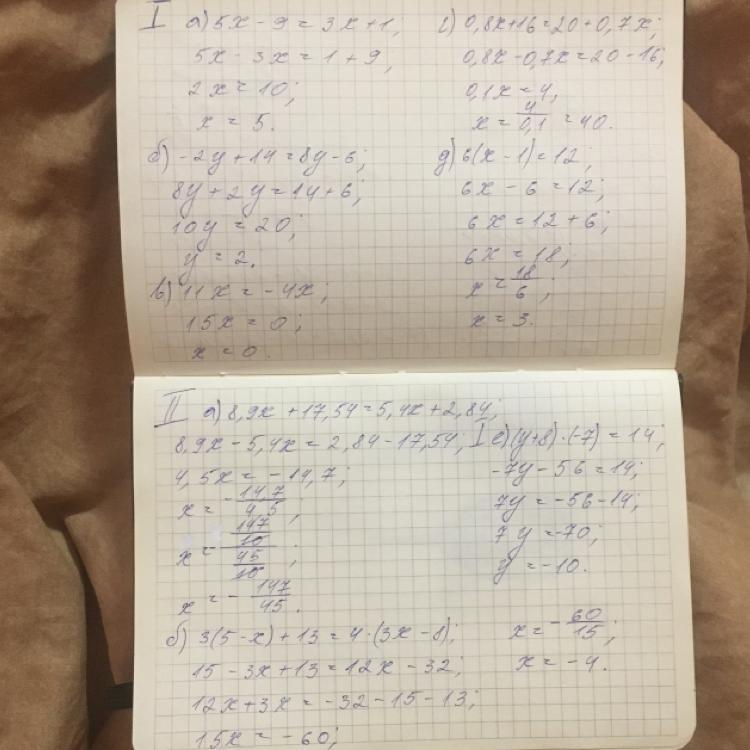 I а) 5x - 9 = 3x + 1;
5x - 3x = 1 + 9;
2x = 10;
x = 5.
б) -2y + 14 = 8y - 6;
8y + 2y = 14 + 6;
10y = 20;
y = 2.
в) 11x = -4x;
15x = 0;
x = 0.
г) 0,8x + 16 = 20 + 0,7x;
0,8x - 0,7x = 20 - 16;
0,1x = 4;
x = 4/0,1 = 40.
д) 6(x - 1) = 12;
6x - 6 = 12;
6x = 12 + 6;
6x = 18;
x = 18/6;
x = 3.
II а) 8,9x + 17,54 = 5,4x + 2,84;
8,9x - 5,4x = 2,84 - 17,54;
4,5x = -14,7;
x = -14,7/4,5;
x = -147/10/45/10;
x = -147/45.
I е) (y + 8) · (-7) = 14;
-7y - 56 = 14;
7y = -56 - 14;
7y = -70;
y = -10.
б) 3(5 - x) + 13 = 4 · (3x - 8);
15 - 3x + 13 = 12x - 32;
12x + 3x = -32 - 15 - 13;
15x = -60;
x = -60/15;
x = -4.